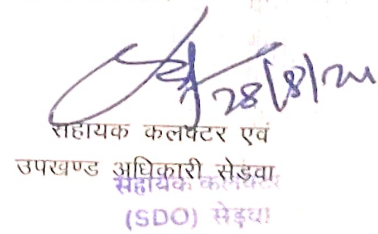 28/8/24
सहायक कलक्टर एवं
उपखण्ड अधिकारी सेड़वा
सहायक कलक्टर
(SDO) सेड़वा